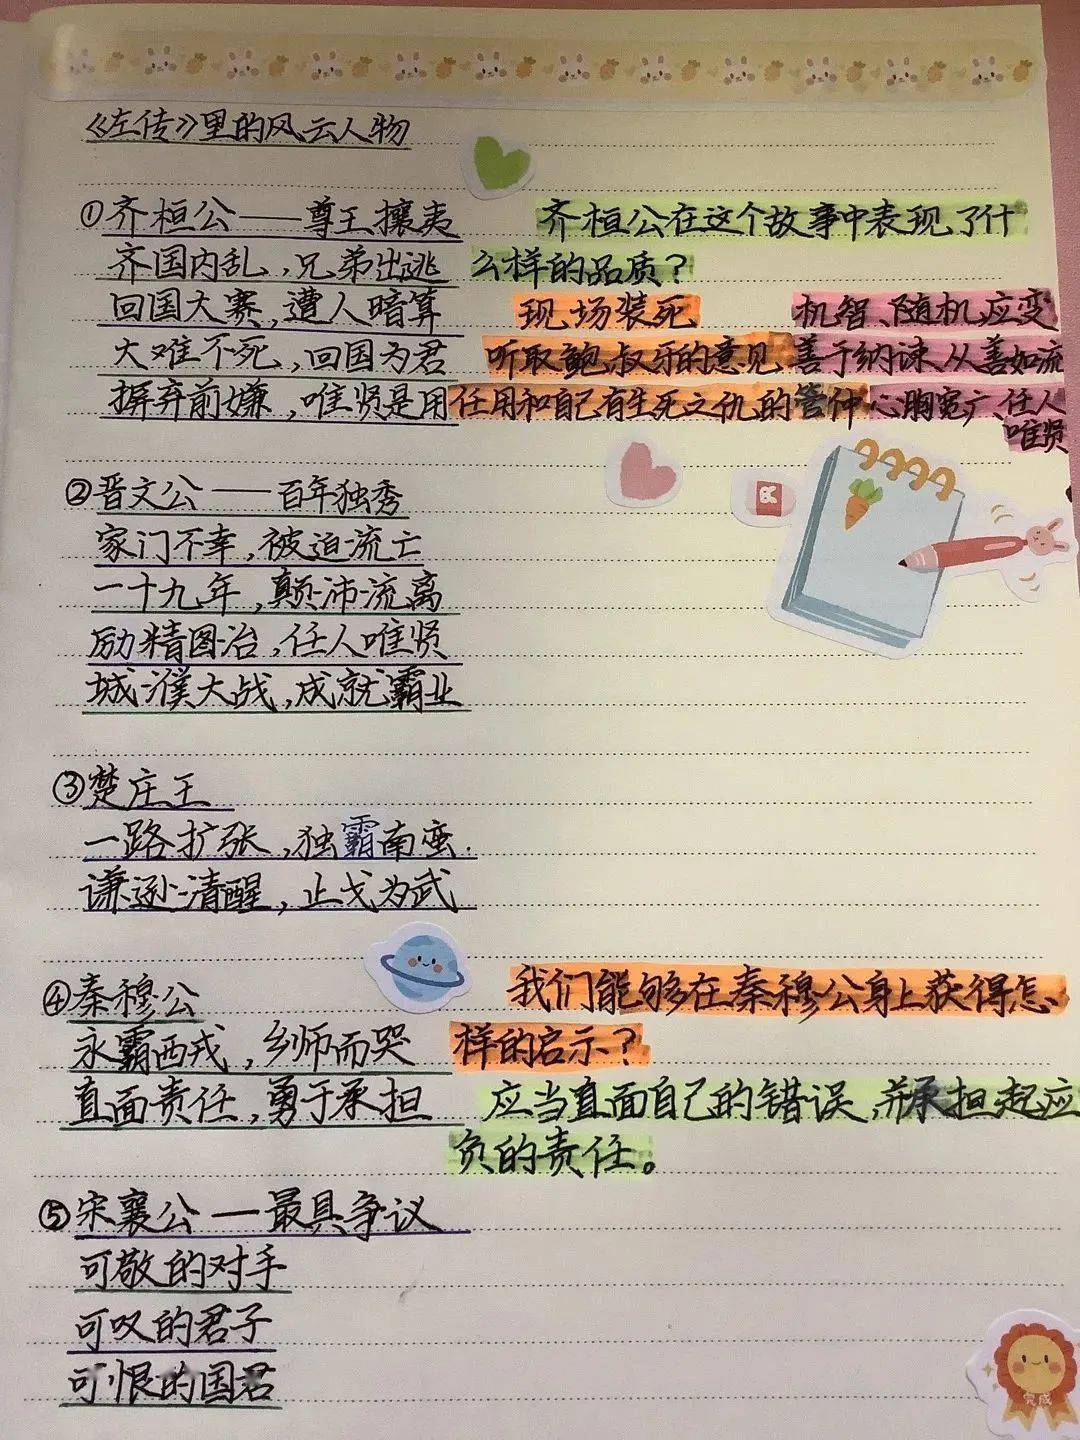 《左传》里的风云人物
①齐桓公——尊王攘夷 齐桓公在这个故事中表现了什
齐国内乱,兄弟出逃 么样的品质?
回国大赛,遭人暗算 现场装死 机智、随机应变
大难不死,回国为君 听取鲍叔牙的意见 善于纳谏 从善如流
摒弃前嫌,唯贤是用 任用和自己有生死之仇的管仲 心胸宽广、任人
唯贤
②晋文公——百年独秀
家门不幸,被迫流亡
一十九年,颠沛流离
励精图治,任人唯贤
城濮大战,成就霸业
③楚庄王
一路扩张,独霸南蛮.
谦逊清醒,止戈为武
④秦穆公 我们能够在秦穆公身上获得怎
永霸西戎,乡师而哭 样的启示?
直面责任,勇于承担 应当直面自己的错误,并承担起应
负的责任。
⑤宋襄公—最具争议
可敬的对手
可叹的君子
可恨的国君
完成